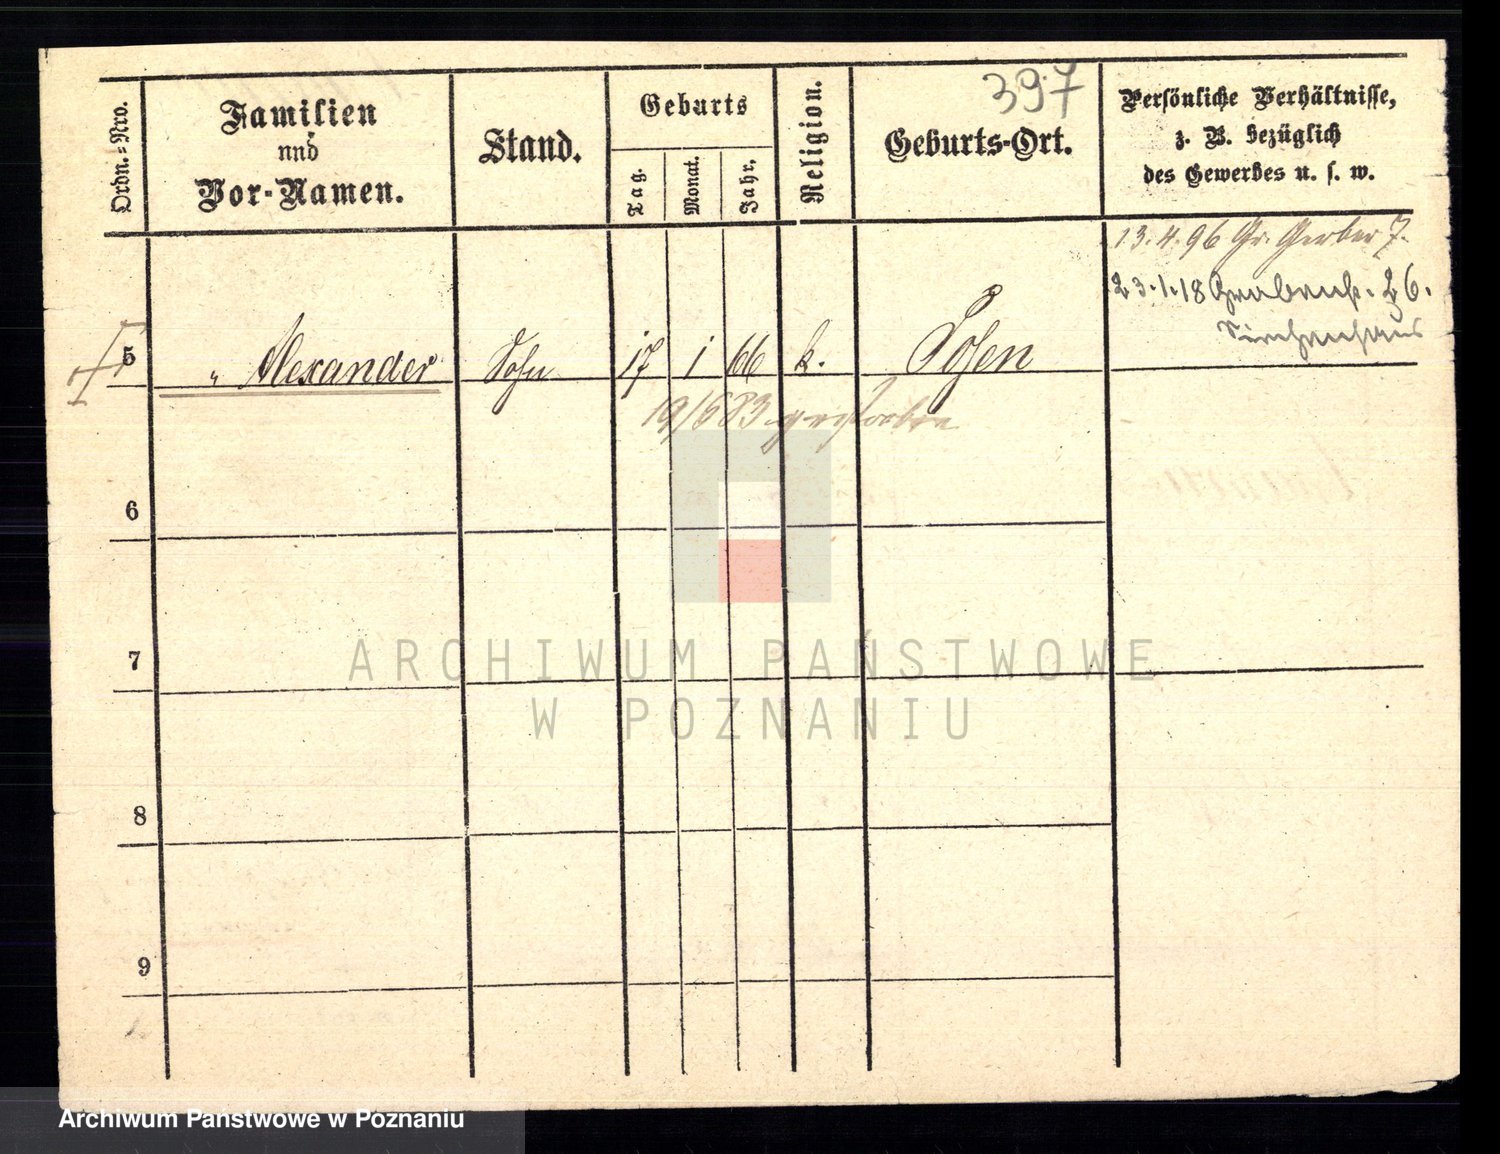 397
Ordn.-Nro.
Familien
und
Vor-Namen.
Stand.
Geburts
Tag.
Monat.
Jahr.
Religion.
Geburts-Ort.
Persönliche Verhältnisse,
z. B. bezüglich
des Gewerbes u. s. w.
13.4.96 Gr. Gerber 7.
23.1.18 Grabenstr. 26.
5 " Alexander Sohn 17 1 66 k. Posen
19/6 83 gestorben
6
7
8
9
ARCHIWUM PAŃSTWOWE
W POZNANIU
Archiwum Państwowe w Poznaniu